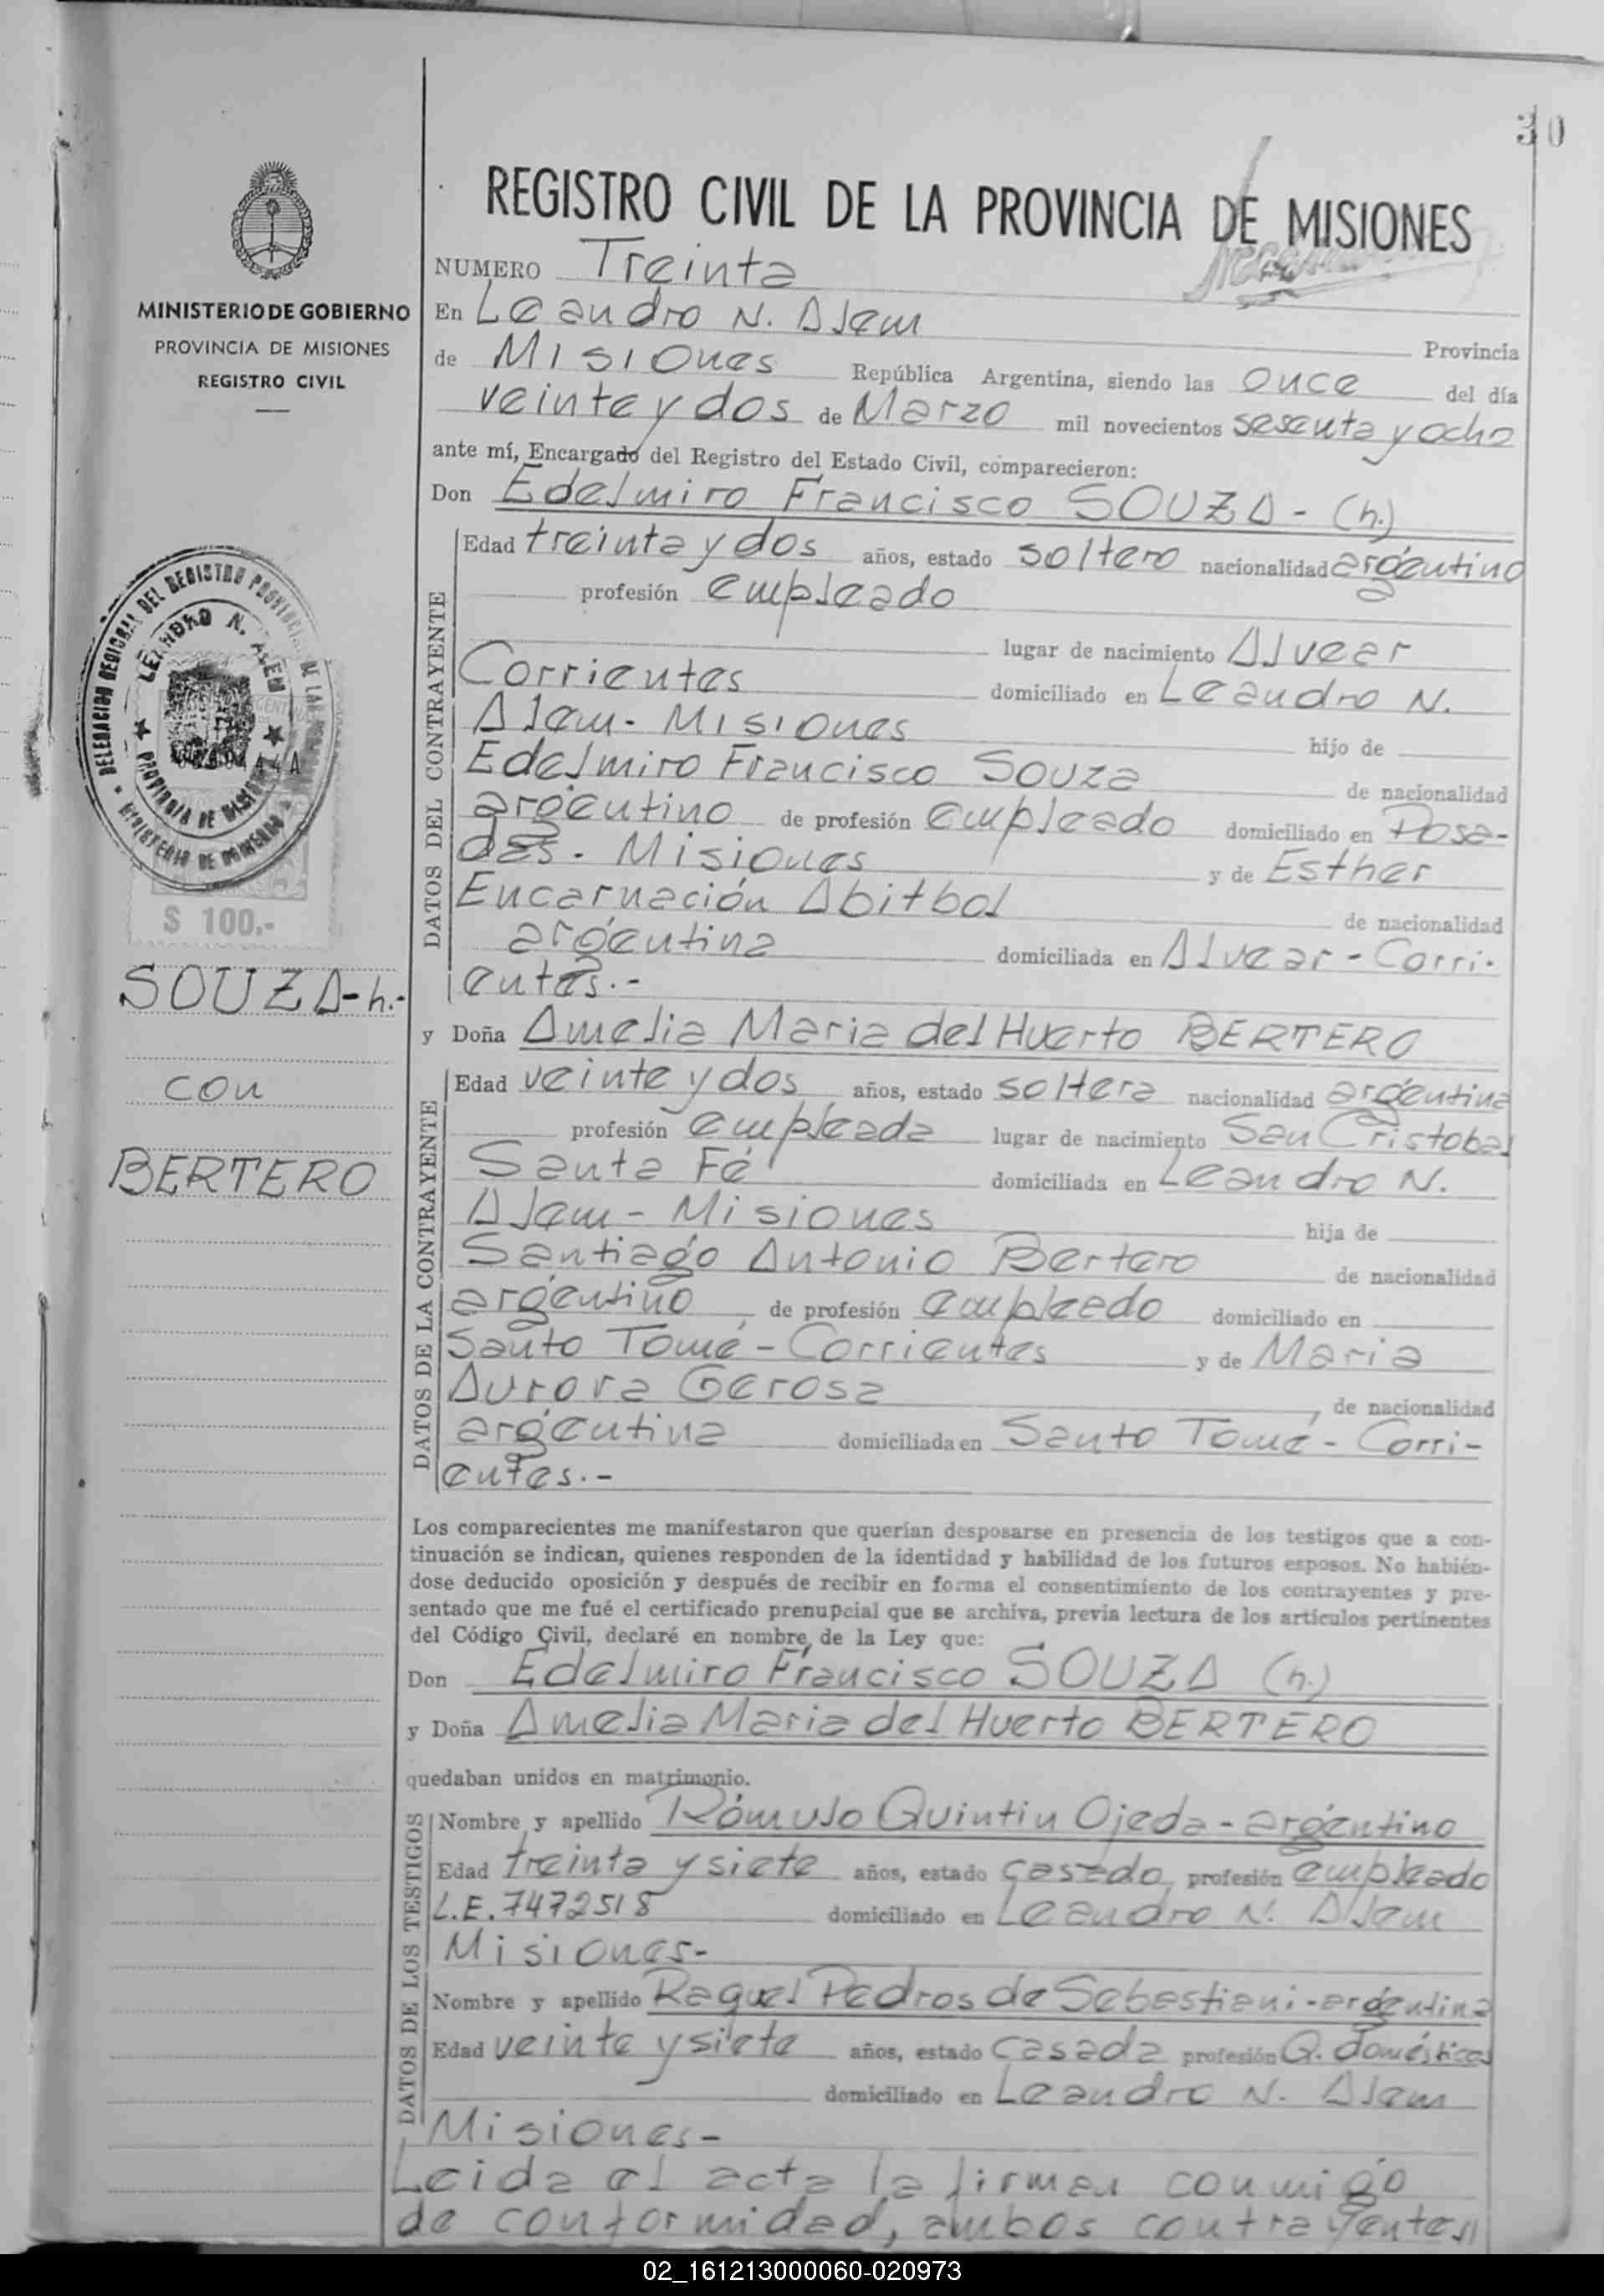 30
REGISTRO CIVIL DE LA PROVINCIA DE MISIONES
MINISTERIO DE GOBIERNO
PROVINCIA DE MISIONES
REGISTRO CIVIL
NUMERO Treinta
En Leandro N. Alem Provincia
de Misiones República Argentina, siendo las once del día
veinte y dos de Marzo mil novecientos sesenta y ocho
ante mí, Encargado del Registro del Estado Civil, comparecieron:
Don Edelmiro Francisco SOUZA - (h.)
DATOS DEL CONTRAYENTE
Edad treinta y dos años, estado soltero nacionalidad argentino
profesión empleado
lugar de nacimiento Alvear
Corrientes domiciliado en Leandro N.
Alem - Misiones hijo de
Edelmiro Francisco Souza de nacionalidad
argentino de profesión empleado domiciliado en Posa-
das. Misiones y de Esther
Encarnación Abitbol de nacionalidad
argentina domiciliada en Alvear - Corri-
entes.-
DELEGACION REGIONAL DEL REGISTRO PROVINCIAL DE LAS
LEANDRO N. ALEM
PROVINCIA DE MISIONES
MINISTERIO DE GOBIERNO
$ 100.-
SOUZA-h.-
con
BERTERO
y Doña Amelia Maria del Huerto BERTERO
DATOS DE LA CONTRAYENTE
Edad veinte y dos años, estado soltera nacionalidad argentina
profesión empleada lugar de nacimiento San Cristobal
Santa Fé domiciliada en Leandro N.
Alem - Misiones hija de
Santiago Antonio Bertero de nacionalidad
argentino, de profesión empleado domiciliado en
Santo Tomé - Corrientes y de Maria
Aurora Gerosa, de nacionalidad
argentina domiciliada en Santo Tomé - Corri-
entes.-
Los comparecientes me manifestaron que querían desposarse en presencia de los testigos que a con-
tinuación se indican, quienes responden de la identidad y habilidad de los futuros esposos. No habién-
dose deducido oposición y después de recibir en forma el consentimiento de los contrayentes y pre-
sentado que me fué el certificado prenupcial que se archiva, previa lectura de los artículos pertinentes
del Código Civil, declaré en nombre de la Ley que:
Don Edelmiro Francisco SOUZA (h.)
y Doña Amelia Maria del Huerto BERTERO
quedaban unidos en matrimonio.
DATOS DE LOS TESTIGOS
Nombre y apellido Rómulo Quintin Ojeda - argentino
Edad treinta y siete años, estado casado, profesión empleado
L.E. 7472518 domiciliado en Leandro N. Alem
Misiones-
Nombre y apellido Raquel Pedros de Sebastiani - argentina
Edad veinte y siete años, estado casada profesión Q. domésticos
domiciliado en Leandro N. Alem
Misiones-
Leida el acta la firman conmigo
de conformidad, ambos contrayentes
02_161213000060-020973